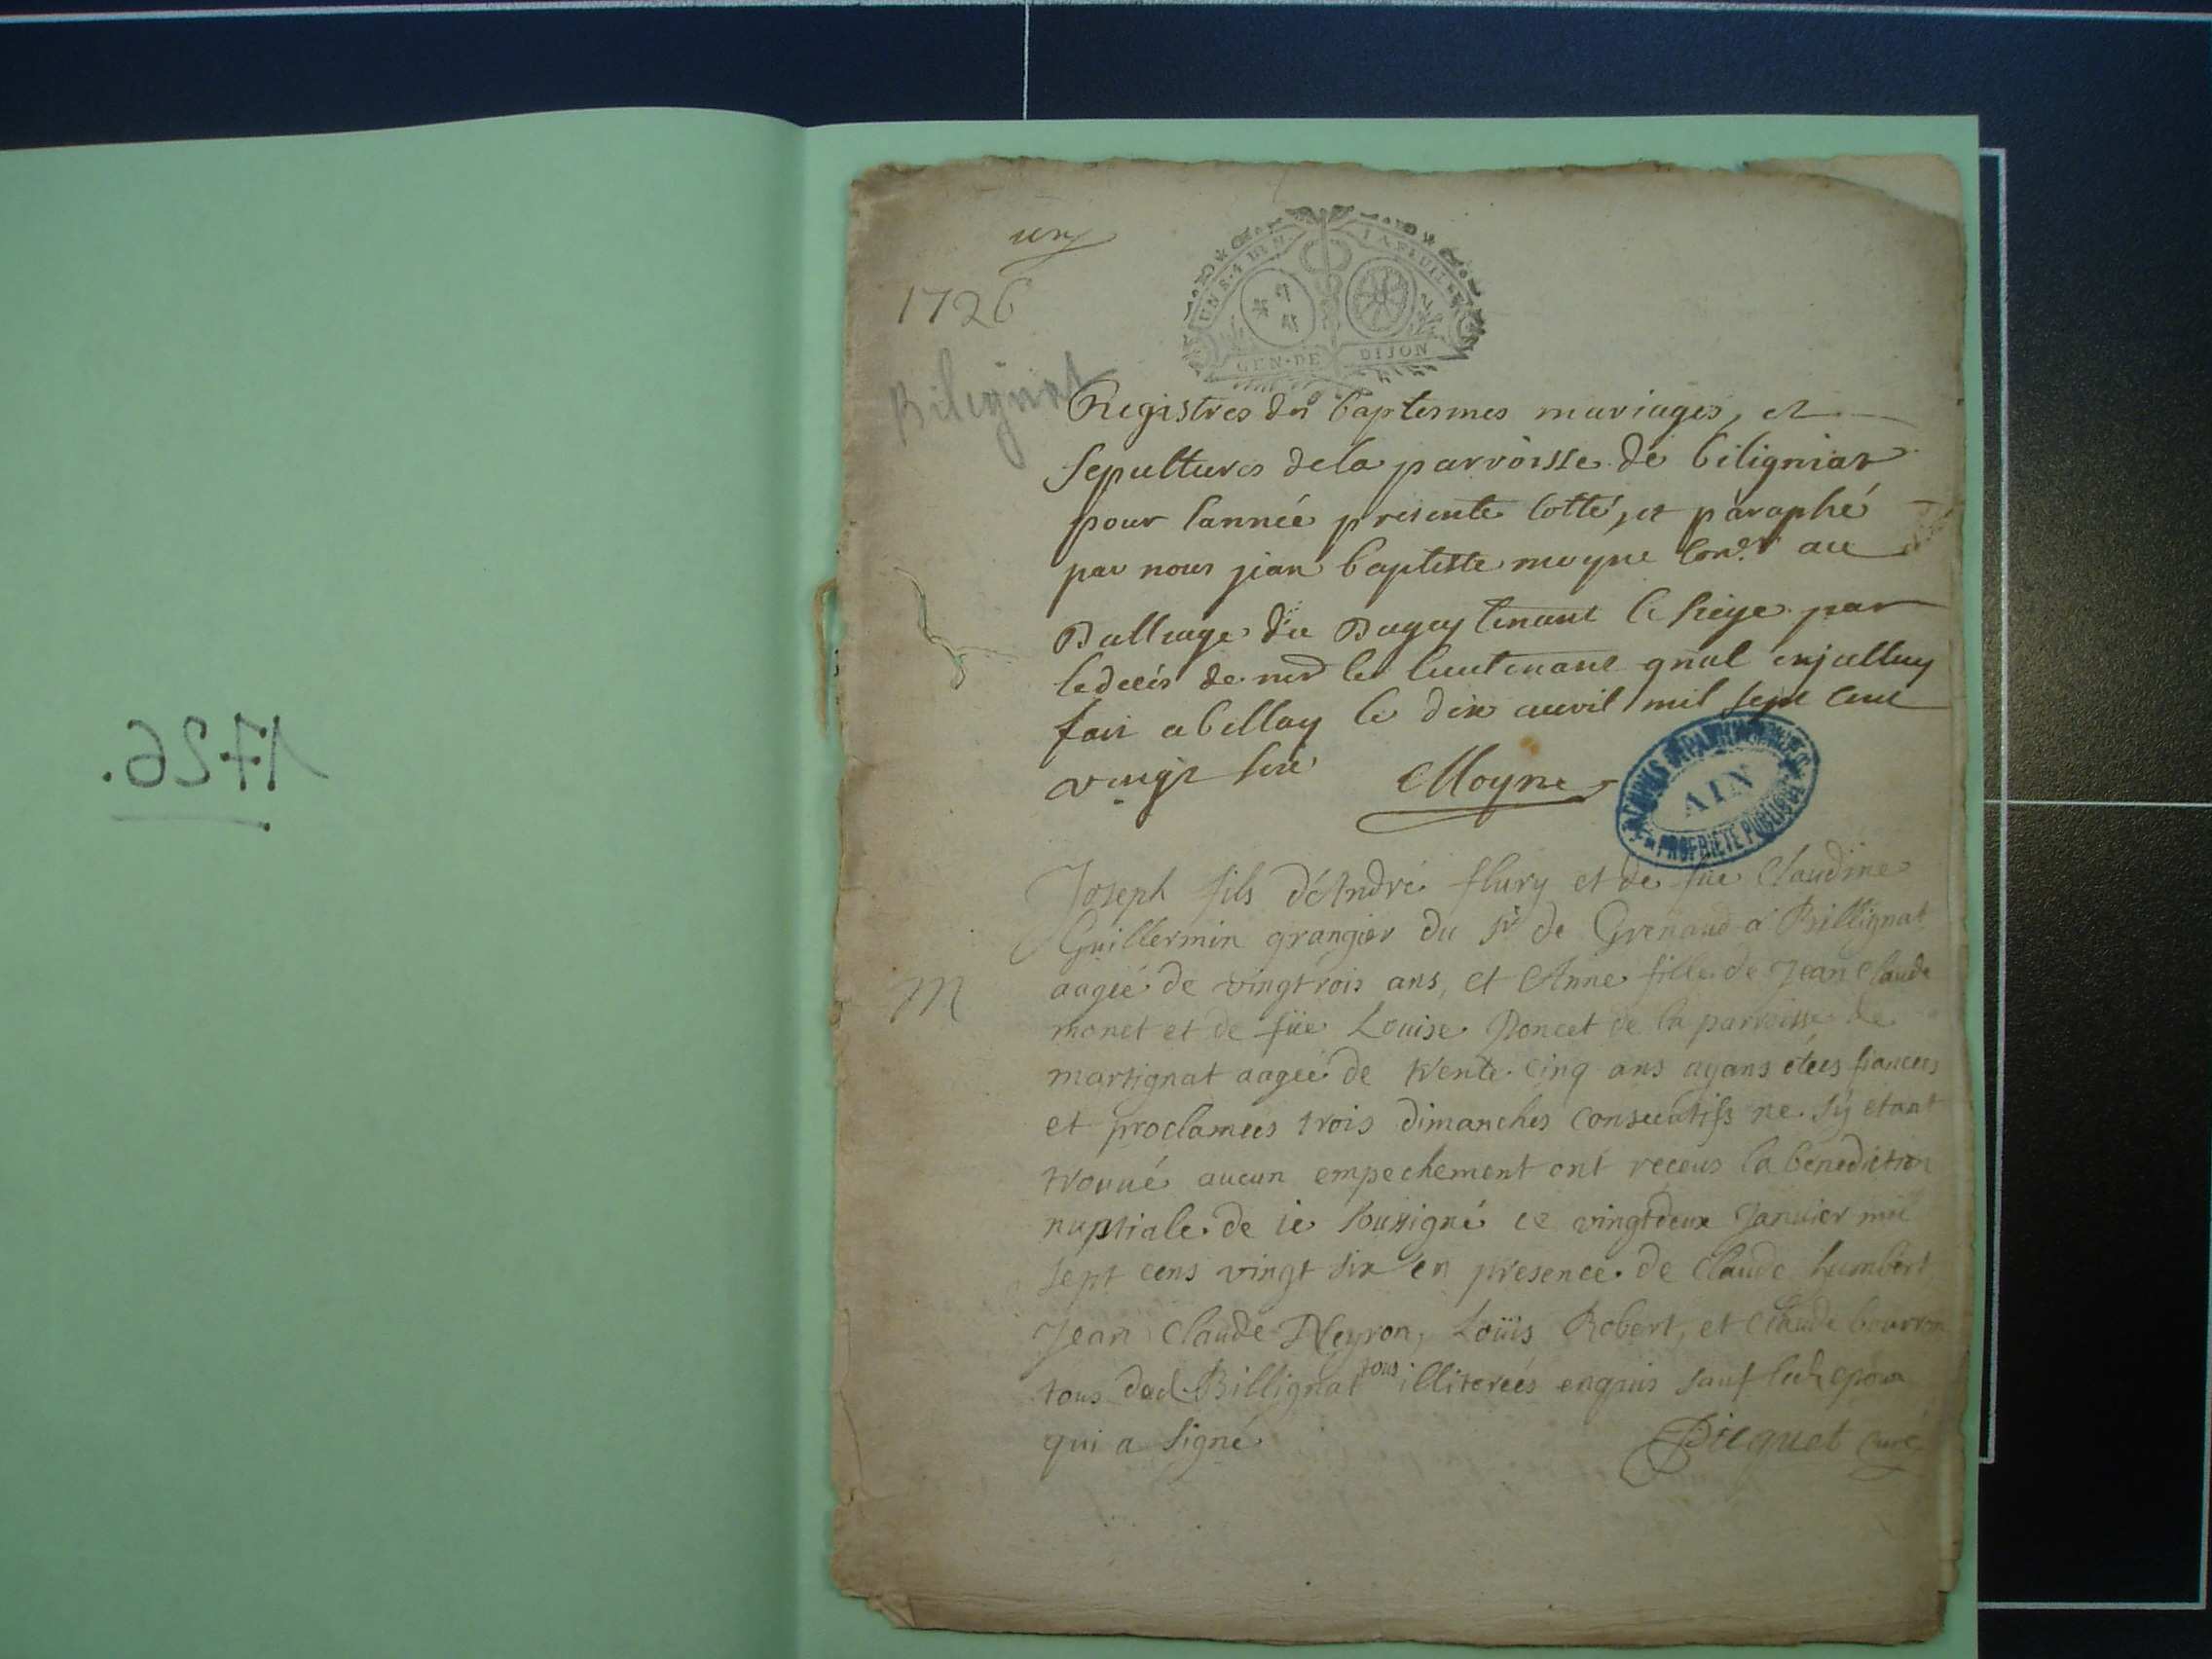 1726.
un
1726
Bilignat
UN S. 4 DEN. LA FEUILLE
GEN. DE DIJON
Registres des baptesmes mariages, et
sepultures dela parroisse de biligniat
pour lannée presente cotté, et paraphé
par nous jean baptiste moyne Con.er au
Balliage du Bugey tenant le siege par
le decès de mr le lieutenant gnal
fait a bellay le dix avril mil sept cent
vingt six Moyne
ARCHIVES DÉPARTEMENTALES
AIN
PROPRIÉTÉ PUBLIQUE
Joseph fils d'André flury et de füe Claudine
Guillermin grangier du sr de Grenaud a Billignat
aagée de vingtrois ans, et Anne fille de Jean Claude
M
monet et de füe Louise Poncet de la parroisse de
martignat aagée de trente cinq ans ayans étées fiancees
et proclamees trois dimanches consecutifs ne sÿ etant
trouué aucun empechement ont receus la benediction
nuptiale de ie soussigné ce vingtdeux Januier mil
sept cens vingt six en presence de Claude humbert
Jean Claude Neyron, Loüis Robert, et Claude bourron
tous dud Billignat tous illiterées enquis sauf led epoux
qui a signé. Picquet curé